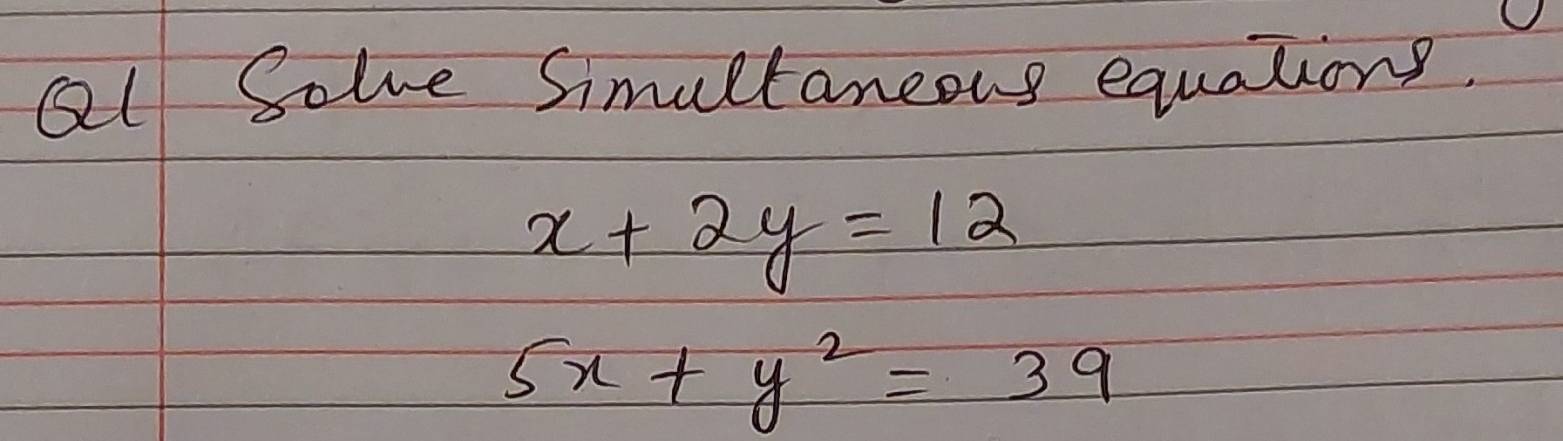 Q1 Solve Simultaneous equations.
x + 2y = 12
5x + y² = 39